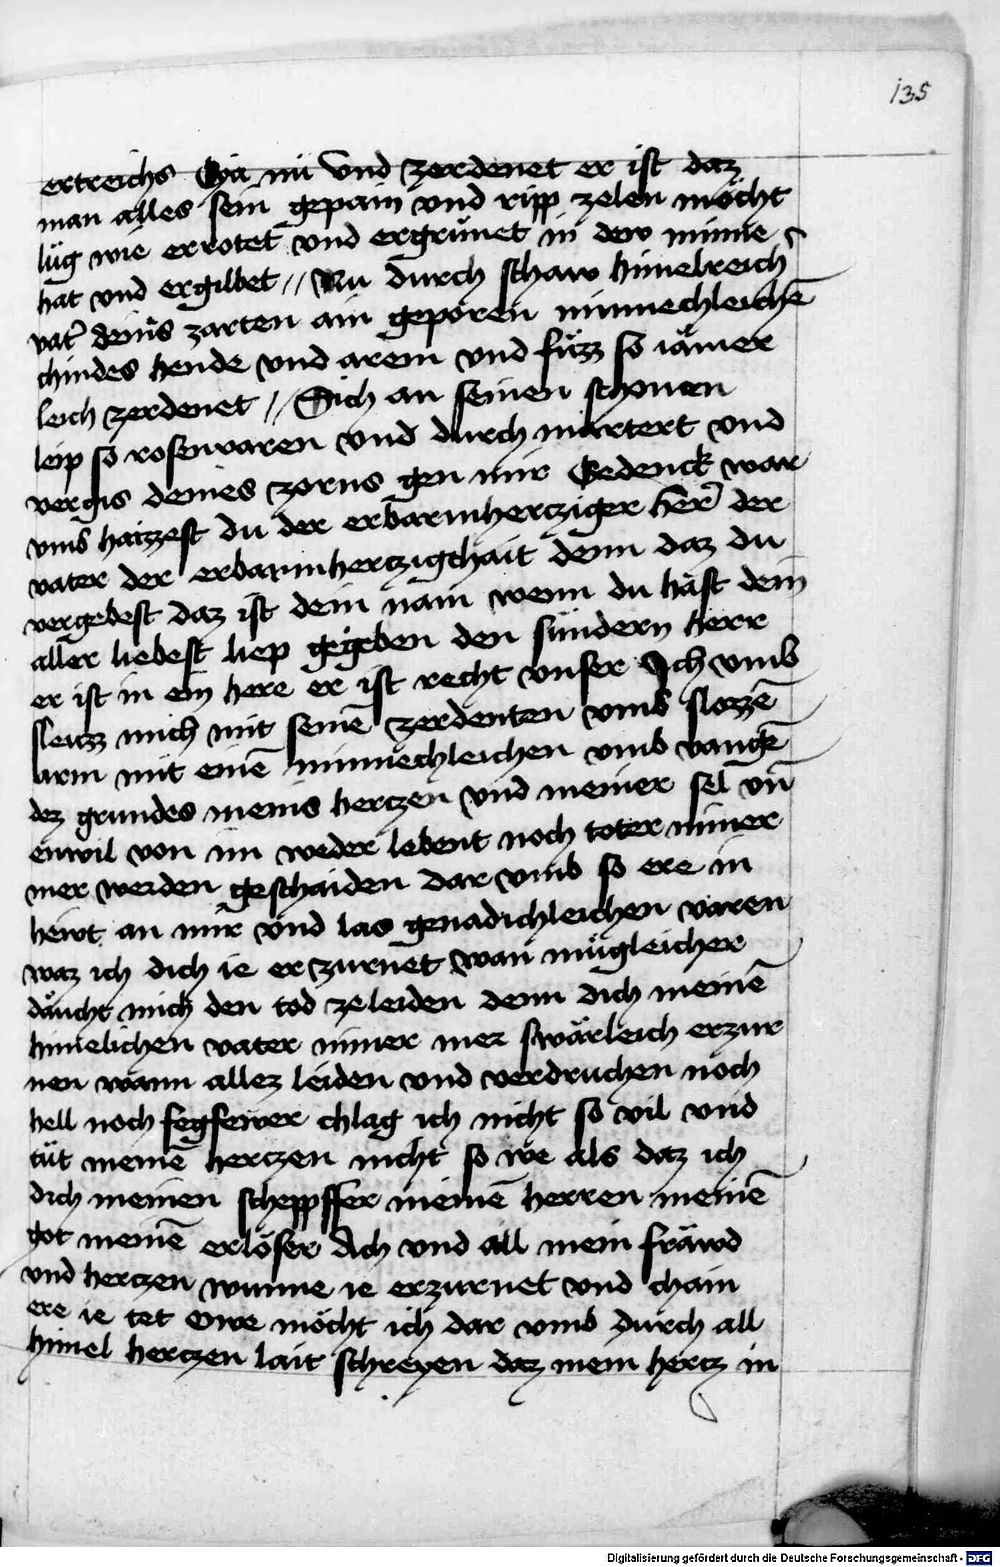 135
ertreichs Eya nü vnd zerdenet er ist daz
man alles sein gepain vnd ripp zelen möcht
lüg wie errotet vnd ergrünet in dew minne
hat vnd ergilbet // Nu durch schaw himelreich
vat̉ deins zarten ain geporen minnechleichē
chindes hende vnd arem vnd füzz so iämer
leich zerdenet // Sich an seinen schonen
leip so rosenvaren vnd durch martert vnd
vergis deines zorns gen mir Gedenck war
vmb haizzest du der erbarmhercziger herr der
vater der erbarmherczigchait denn daz du
vergebest daz ist dein nam wenn du häst dein
aller liebest liep gegeben den sündern herr
er ist in ein here er ist recht vnser Ich vmb
sleuzz mich mit seinē zerdenten vmb slozzē
arm mit einē minnechleichen vmb vangk
dez grundes meins herczen vnd meiner sel vn̄
enwil von im weder lebent noch toter nimer
mer werden geschaiden dar vmb so ere in
hewt an mir vnd las genadichleichen varen
waz ich dich ie erzurnet wan mügleicher
däucht mich den tod ze leiden denn dich meinē
himelichen vater nimer mer swärleich erzur
nen wann allez leiden vnd verdruchen noch
hell noch fegfewer chlag ich nicht so vil vnd
tüt meinē herczen nicht so we als daz ich
dich meinen scheppffer meinē herren meinē
got meinē erlöser Ach vnd all mein fräwd
vnd herczen wunne ie erzurnet vnd chain
ere ie tet Owe möcht ich dar vmb durch all
himel herczen lait schreyen daz mein hercz in
Digitalisierung gefördert durch die Deutsche Forschungsgemeinschaft - DFG